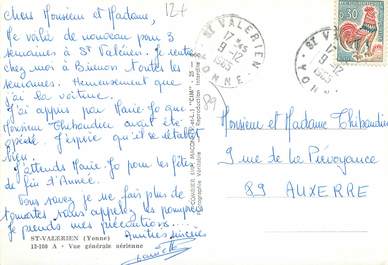 Chers Monsieur et Madame,
12+
Me voilà de nouveau pour 3
semaines à St Valérien. Je rentre
chez moi à Brienon toutes les
semaines. Heureusement que
j'ai la voiture.
J'ai appris par Marie-Jo que
Monsieur Thibaudin avait été
opéré. J'espère qu'il se rétablit
bien.
J'attends Marie-Jo pour les fêtes
de fin d'Année.
Vous savez je ne fais plus de
tomates vous appelez les pompiers
Je prends mes précautions....
Amitiés sincères
ST-VALERIEN (Yonne)
13-100 A - Vue générale aérienne
Photographie Véritable - Reproduction Interdite
89
ST VALERIEN
17-45
9-12
1965
YONNE
ST VALERIEN
17-45
9-12
1965
YONNE
0,30
Monsieur et Madame Thibaudin
9 rue de la Prévoyance
89 AUXERRE